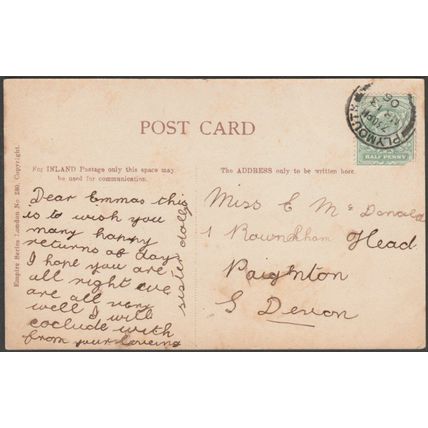 POST CARD
For INLAND Postage only this space may
be used for communication.
The ADDRESS only to be written here.
Empire Series London No 230. Copyright.
PLYMOUTH
06
HALF PENNY
Dear Emmas this
is to wish you
many happy
returns of day
I hope you are
all right we
are all very
well I will
coclude with
from your loveing
sister dolly
Miss E Mc Donald
1 Rownkham Head
Paignton
S Devon